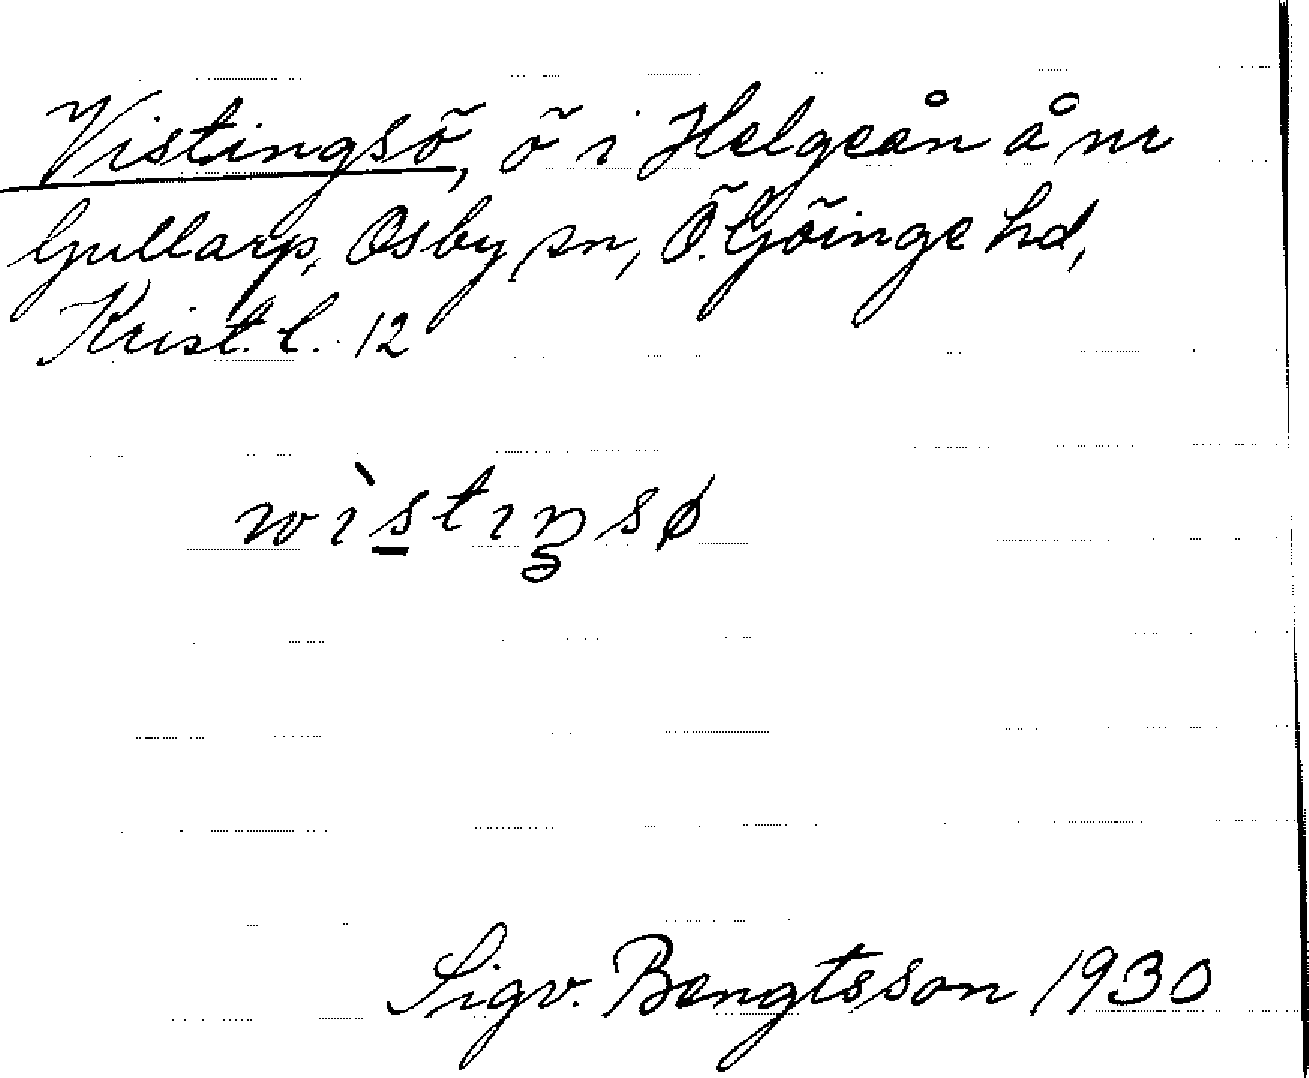 Vistingsö, ö i Helgeån å nr
Gullarp, Osby sn, Ö. Göinge hd,
Krist. l. 12
wìstıŋsø
Sigv. Bengtsson 1930